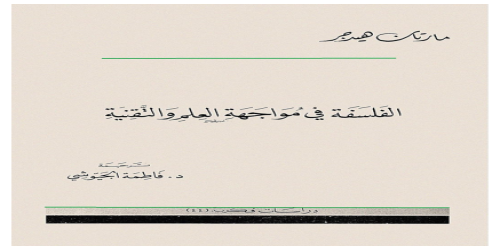 مارتن هيدجر
الفَلسَفَة في مُوَاجَهَةِ العِلمِ وَالتَّقنيَةِ
ترجمَة
د. فَاطِمَة الجَيوشي
دراسات فكرية (٤٤)